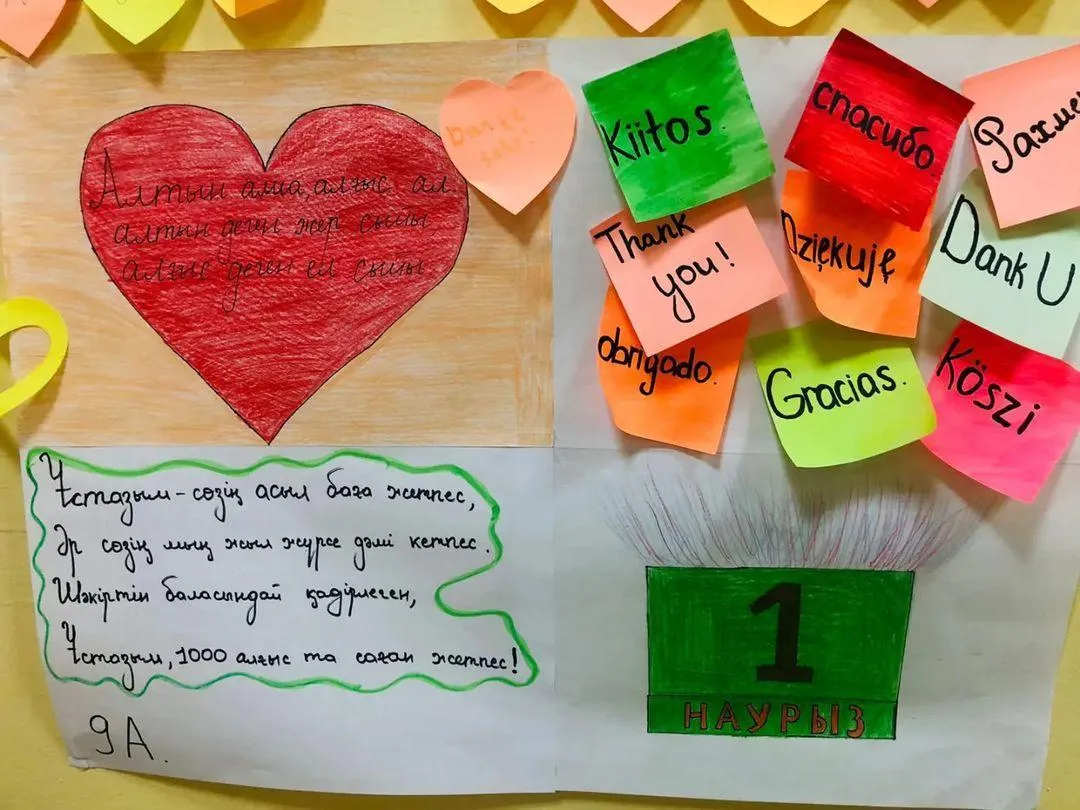 Алтын алма, алғыс ал
алтын деген жер сыйы
алғыс деген ел сыйы
Danke
sehr!
Kiitos.
спасибо.
Рахме
Thank
you!
Dziękuję
Dank U
obrigado.
Gracias.
Köszi
Ұстазым - сөзің асыл баға жетпес,
Әр сөзің мың жыл жүрсе дәмі кетпес.
Шәкіртін баласындай қадірлеген,
Ұстазым, 1000 алғыс та саған жетпес!
9 А.
1
НАУРЫЗ